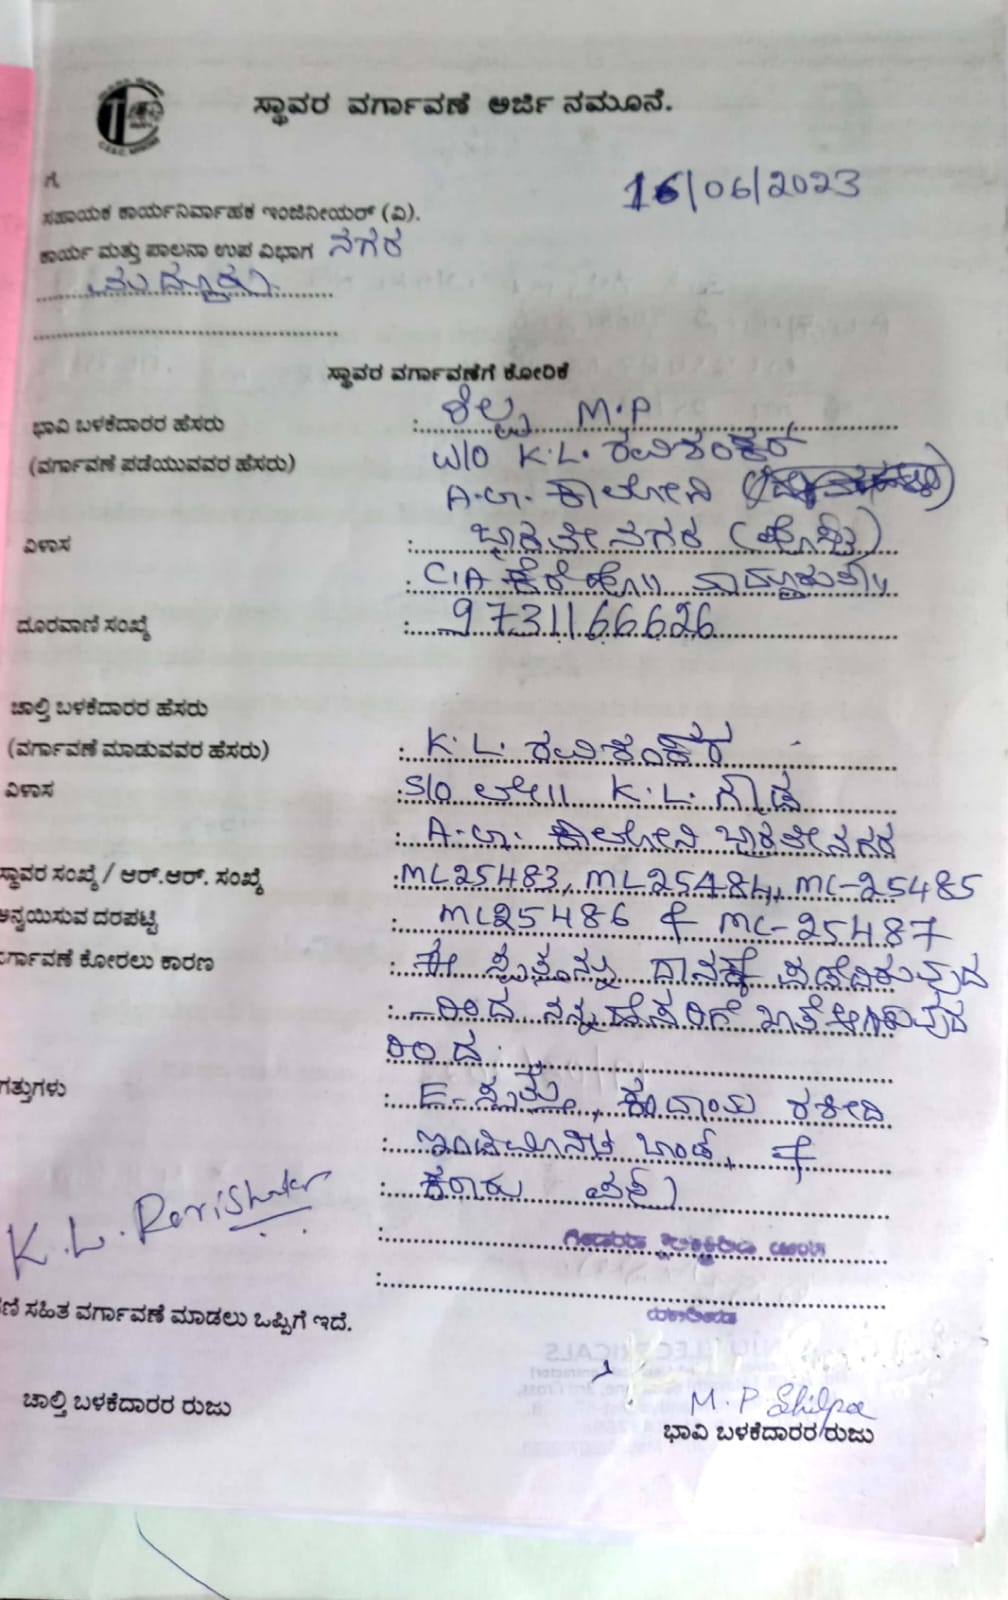 ಸ್ಥಾವರ ವರ್ಗಾವಣೆ ಅರ್ಜಿ ನಮೂನೆ.
16/06/2023
ಗೆ
ಸಹಾಯಕ ಕಾರ್ಯನಿರ್ವಾಹಕ ಇಂಜಿನೀಯರ್ (ವಿ).
ಕಾರ್ಯ ಮತ್ತು ಪಾಲನಾ ಉಪ ವಿಭಾಗ ನಗರ
ಮದ್ದೂರು.
ಸ್ಥಾವರ ವರ್ಗಾವಣೆಗೆ ಕೋರಿಕೆ
ಭಾವಿ ಬಳಕೆದಾರರ ಹೆಸರು : ಶಿಲ್ಪ M.P
(ವರ್ಗಾವಣೆ ಪಡೆಯುವವರ ಹೆಸರು) W/O K.L. ರವಿಶಂಕರ್
ಕಾಲೋನಿ
ವಿಳಾಸ : ಭಾರತೀನಗರ (ಪೋಸ್ಟ್)
: C.A ಕೆರೆ ಹೋ॥ ಮದ್ದೂರು ತಾ॥
ದೂರವಾಣಿ ಸಂಖ್ಯೆ : 9731166626
ಚಾಲ್ತಿ ಬಳಕೆದಾರರ ಹೆಸರು
(ವರ್ಗಾವಣೆ ಮಾಡುವವರ ಹೆಸರು) : K.L. ರವಿಶಂಕರ
ವಿಳಾಸ : S/O ಲೇ॥ K.L. ಗೌಡ
: ಕಾಲೋನಿ ಭಾರತೀನಗರ
ಸ್ಥಾವರ ಸಂಖ್ಯೆ / ಆರ್.ಆರ್. ಸಂಖ್ಯೆ : ML25483, ML25484, ML-25485
ಅನ್ವಯಿಸುವ ದರಪಟ್ಟಿ : ML25486 & ML-25487
ರ್ಗಾವಣೆ ಕೋರಲು ಕಾರಣ : ಈ ಸ್ವತ್ತನ್ನು ದಾನಕ್ಕೆ ಪಡೆದಿರುವುದ
: -ರಿಂದ ನನ್ನ ಹೆಸರಿಗೆ ಖಾತೆ ಆಗಿರುವುದ
ರಿಂದ
ಗತ್ತುಗಳು : E-ಸ್ವತ್ತು, ಕಂದಾಯ ರಶೀದಿ
: ಇಂಡಿಮಾನಿಟಿ ಬಾಂಡ್, &
: ಕರಾರು ಪತ್ರ
K.L. Ravishanker
ಣಿ ಸಹಿತ ವರ್ಗಾವಣೆ ಮಾಡಲು ಒಪ್ಪಿಗೆ ಇದೆ.
M.P. Shilpa
ಚಾಲ್ತಿ ಬಳಕೆದಾರರ ರುಜು
ಭಾವಿ ಬಳಕೆದಾರರ ರುಜು